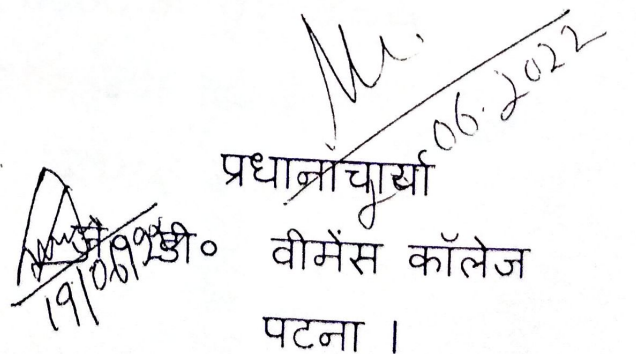 06.2022
प्रधानाचार्या
जे० डी० वीमेंस कॉलेज
पटना ।